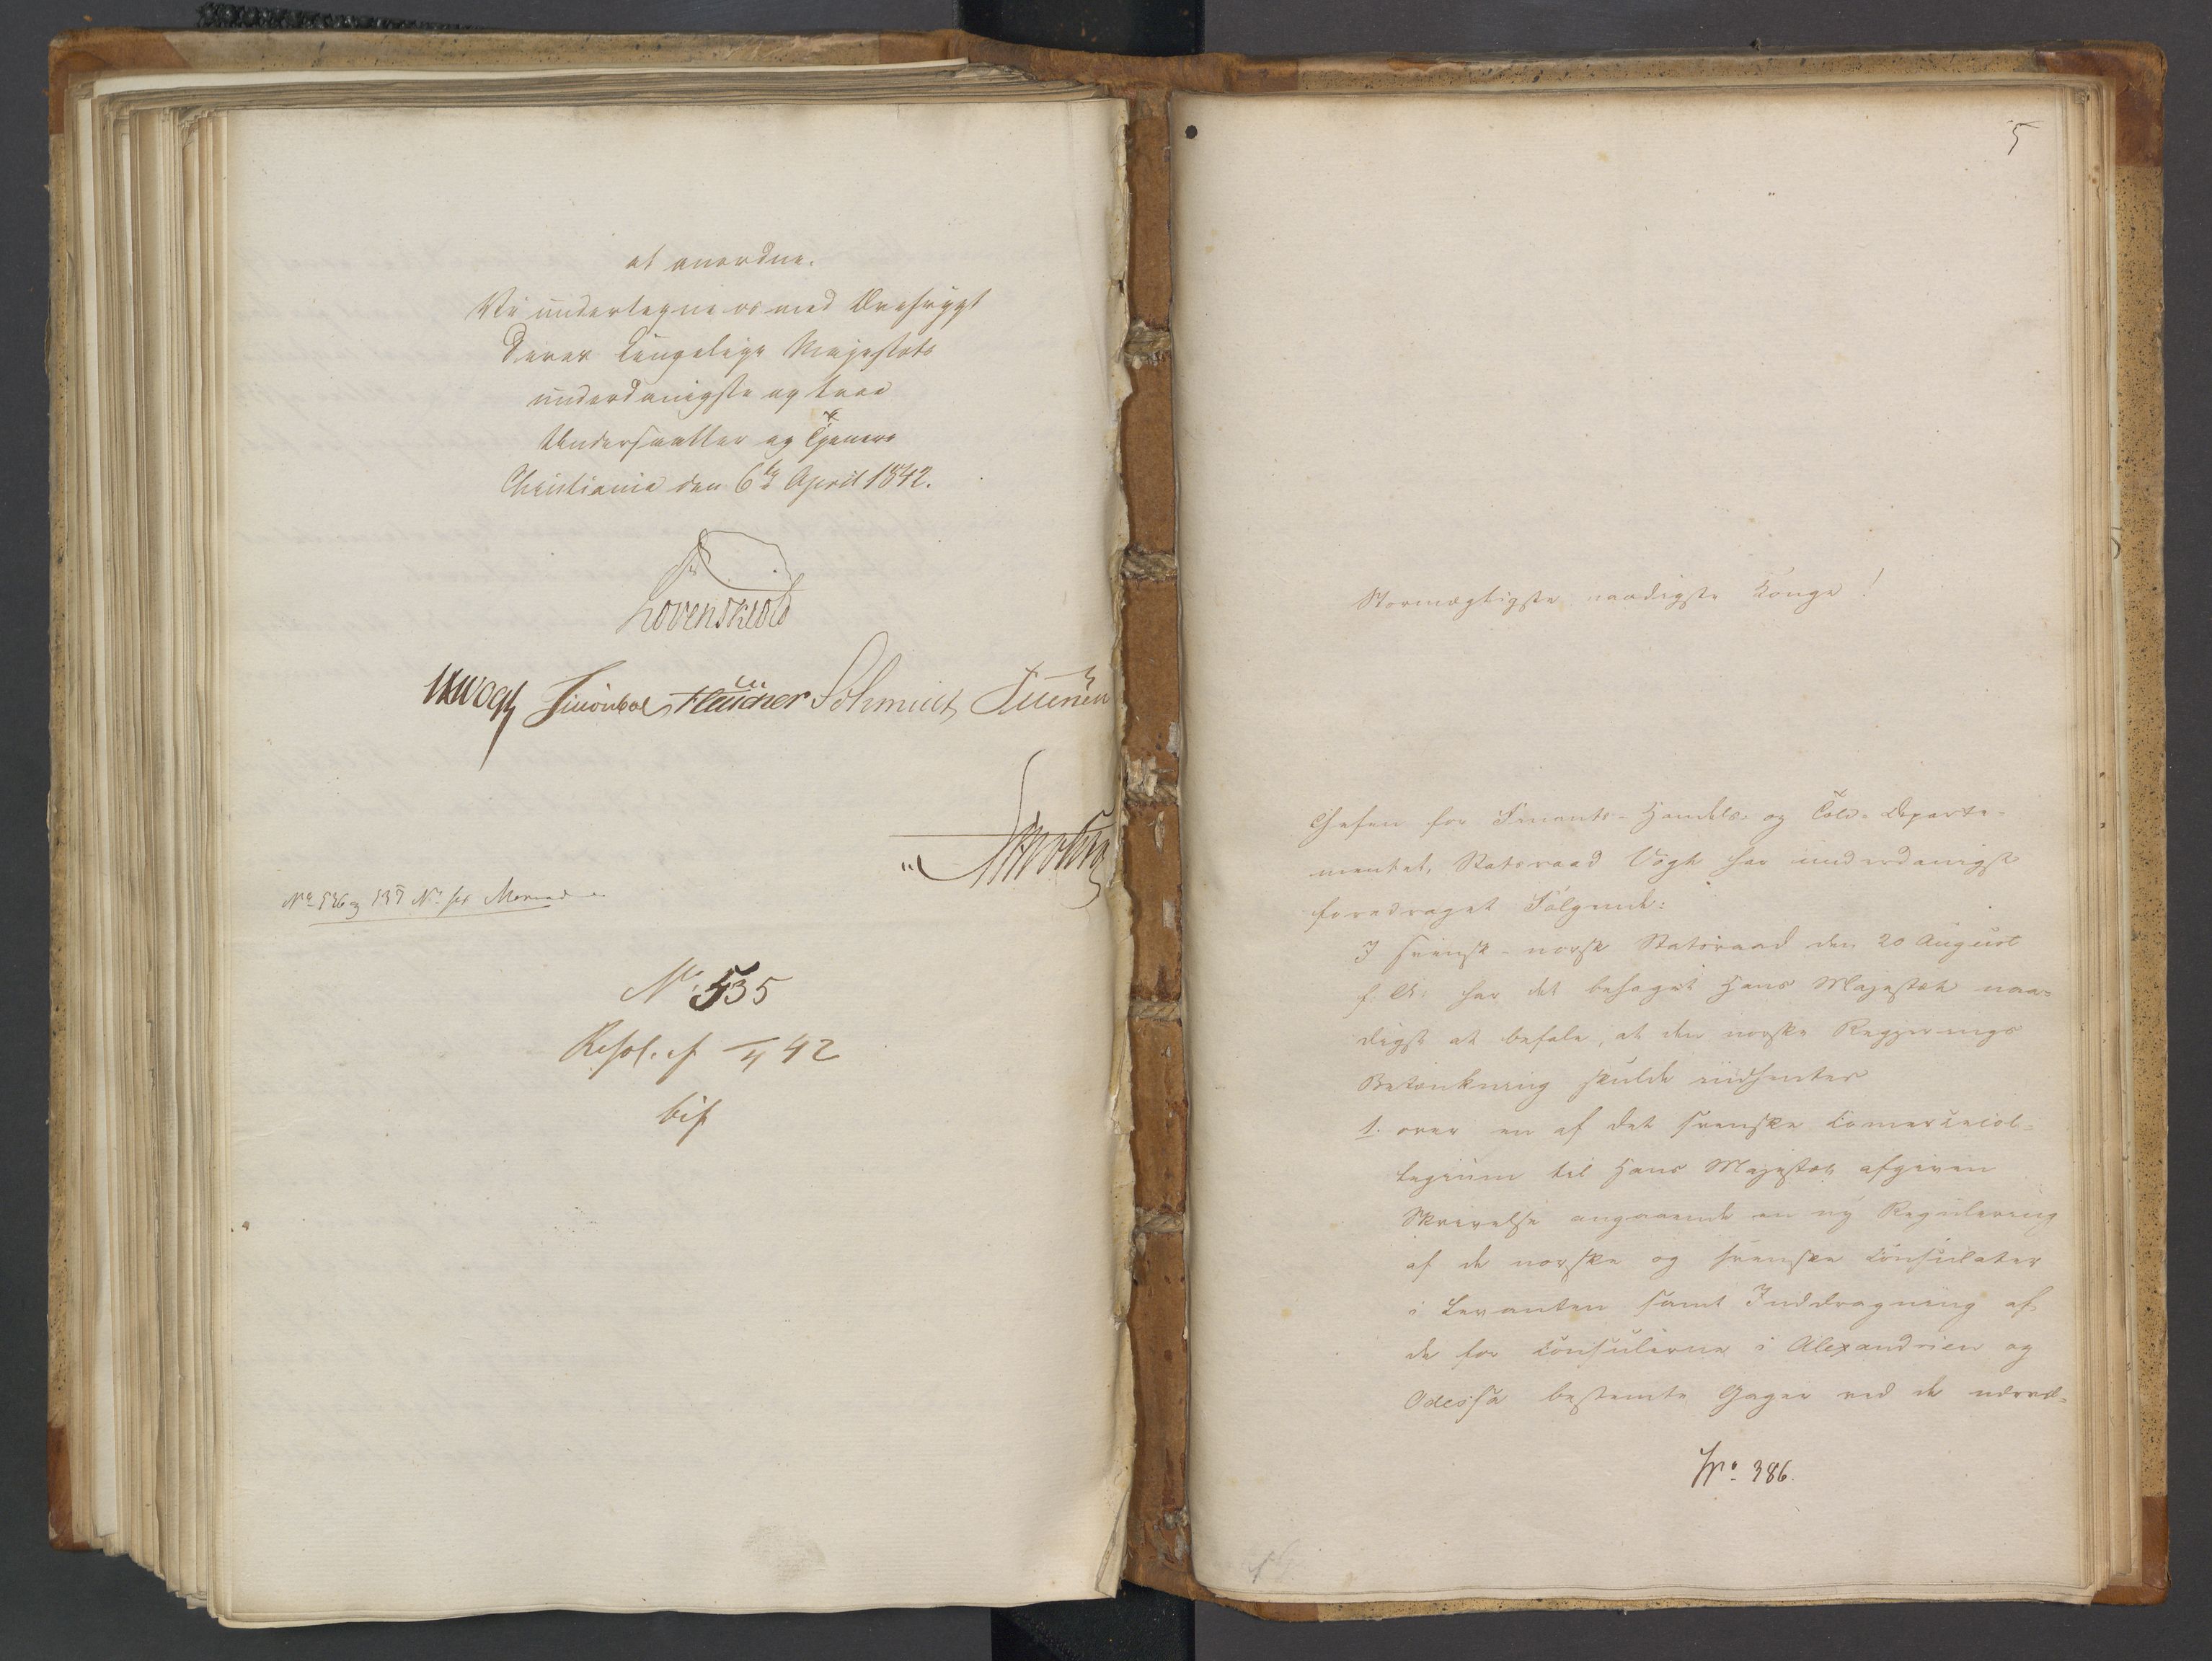 at anordne.
Vi undertegne os med Ærefrygt
Deres Kongelige Majestæts
underdanigste og troe
Undersaatter og Tjenere
Christiania den 6te April 1842.
Løvenskiold
Vogt Schmidt
No 536 og 537
No. 535
Resol. af 4 42
bif
5
Stormægtigste naadigste Konge!
Chefen for Finants- Handels- og Told-Departe-
mentet, Statsraad Vogt har underdanigst
foredraget Følgende:
I svensk-norsk Statsraad den 20 August
f. A. har det behaget Hans Majestæt naa-
digst at befale, at den norske Regjerings
Betænkning skulde indhentes
1. over en af det svenske Commercecol-
legium til Hans Majestæt afgiven
Skrivelse angaaende en ny Regulering
af de norske og svenske Consulater
i Levanten samt Inddragning af
de for Consulerne i Alexandrien og
Odessa bestemte Gager ved de nærvæ-
No. 386.